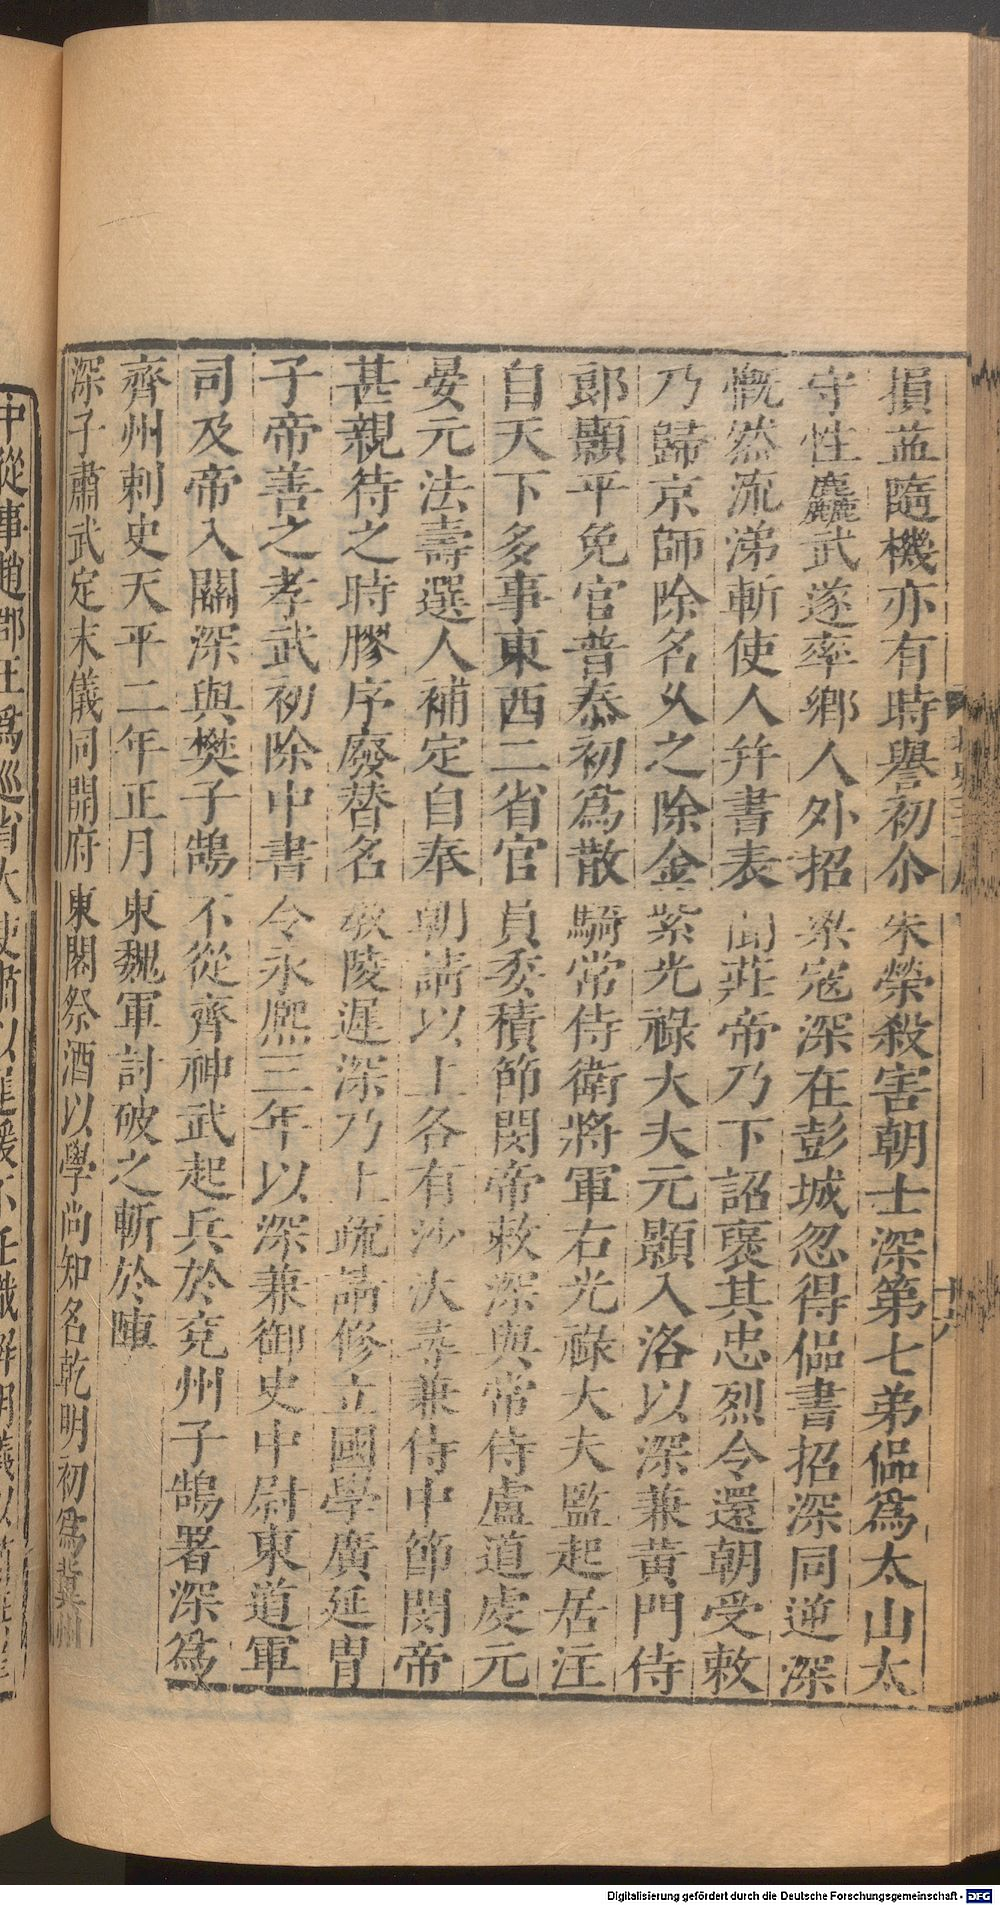 損益隨機亦有時譽初尒朱榮殺害朝士深第七弟偘爲太山太
守性麤武遂率鄉人外招梁寇深在彭城忽得偘書招深同逆深
慨然流涕斬使人并書表聞莊帝乃下詔褒其忠烈令還朝受敕
乃歸京師除名久之除金紫光祿大夫元顥入洛以深兼黃門侍
郎顥平免官普泰初爲散騎常侍衛將軍右光祿大夫監起居注
自天下多事東西二省官員委積節閔帝敕深與常侍盧道虔元
晏元法壽選人補定自奉朝請以上各有沙汰尋兼侍中節閔帝
甚親待之時膠序廢替名敎陵遲深乃上疏請修立國學廣延冑
子帝善之孝武初除中書令永熙三年以深兼御史中尉東道軍
司及帝入關深與樊子鵠不從齊神武起兵於兗州子鵠署深爲
齊州刺史天平二年正月東魏軍討破之斬於陣
深子肅武定末儀同開府東閣祭酒以學尚知名乾明初爲冀州
中從事趙郡王爲巡省大使肅以遲緩不任職解朗
十六
Digitalisierung gefördert durch die Deutsche Forschungsgemeinschaft - DFG